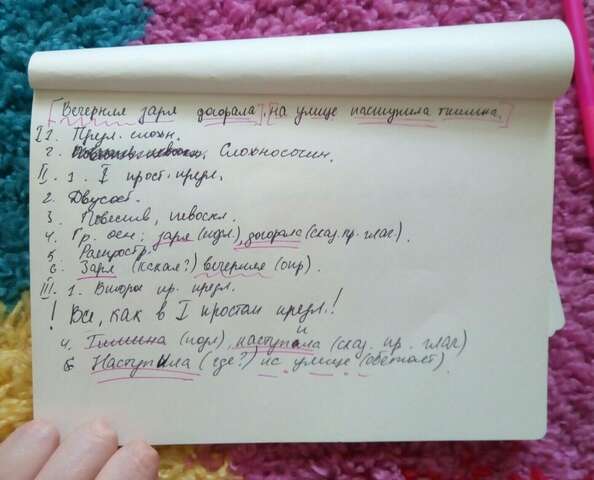 [Вечерняя заря догорала], [на улице наступила тишина.]
I 1. Предл. сложн.
2. Сложносочин.
II. 1. I прост. предл.
2. Двусост.
3. Повеств, невоскл.
4. Гр. осн: заря (подл), догорала (сказ. пр. глаг).
5. Распростр.
6. Заря (какая?) вечерняя (опр).
III. 1. Второе пр. предл.
! Все, как в I простом предл.!
4. Тишина (подл), наступила (сказ. пр. глаг)
6 Наступила (где?) на улице (обстоят).